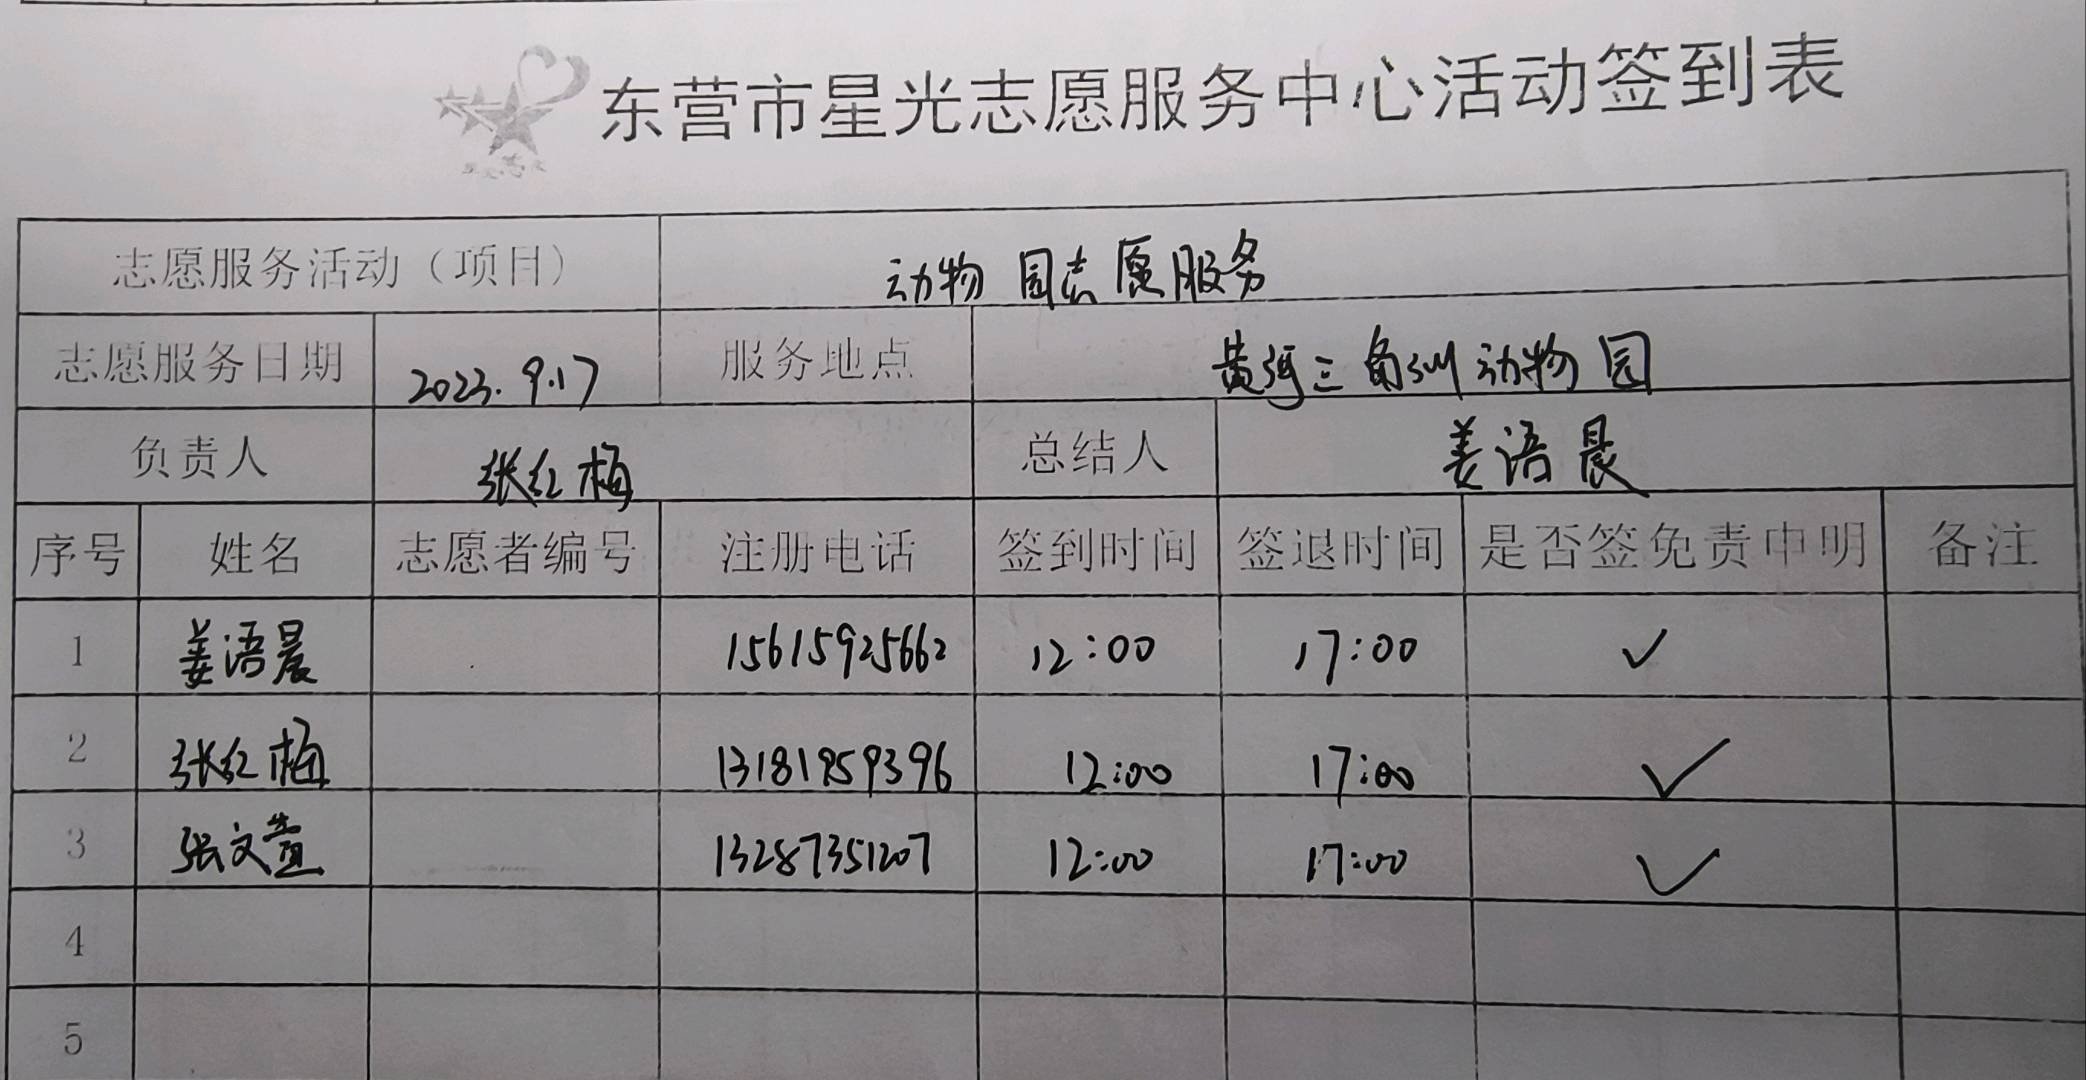 东营市星光志愿服务中心活动签到表
志愿服务活动（项目） 动物园志愿服务
志愿服务日期 2023.9.17 服务地点 黄河三角洲动物园
负责人 张红梅 总结人 姜语晨
序号 姓名 志愿者编号 注册电话 签到时间 签退时间 是否签免责申明 备注
1 姜语晨 15615925662 12:00 17:00 ✓
2 张红梅 13181959396 12:00 17:00 ✓
3 张文萱 13287351207 12:00 17:00 ✓
4
5